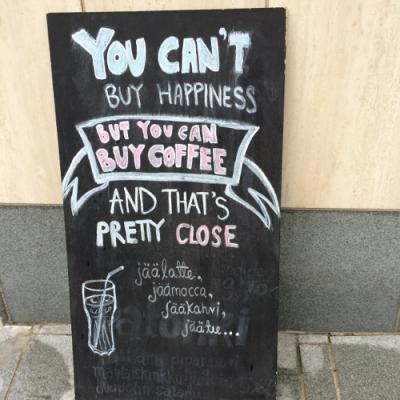 YOU CAN'T
BUY HAPPINESS
BUT YOU CAN
BUY COFFEE
AND THAT'S
PRETTY CLOSE
jäälatte,
jäämocca,
jääkahvi,
jäätee...